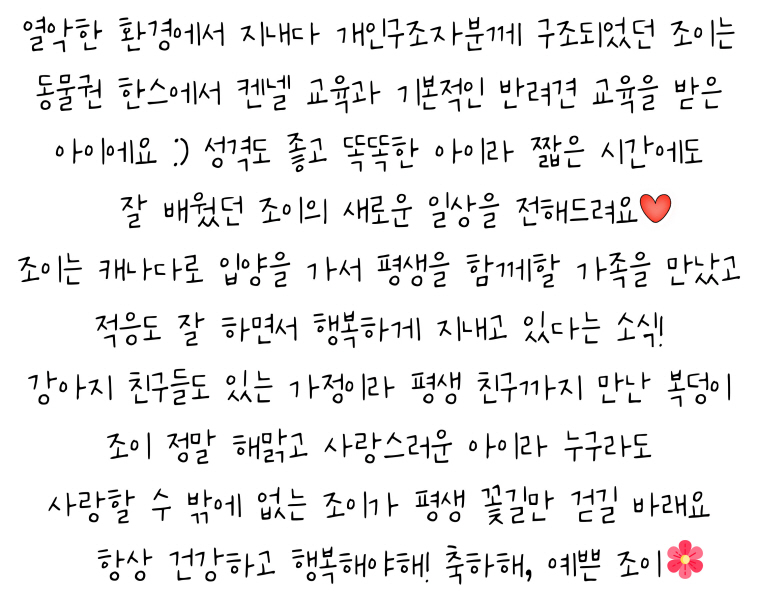 열악한 환경에서 지내다 개인구조자분께 구조되었던 조이는
동물권 한스에서 켄넬 교육과 기본적인 반려견 교육을 받은
아이에요 :) 성격도 좋고 똑똑한 아이라 짧은 시간에도
잘 배웠던 조이의 새로운 일상을 전해드려요❤️
조이는 캐나다로 입양을 가서 평생을 함께할 가족을 만났고
적응도 잘 하면서 행복하게 지내고 있다는 소식!
강아지 친구들도 있는 가정이라 평생 친구까지 만난 복덩이
조이 정말 해맑고 사랑스러운 아이라 누구라도
사랑할 수 밖에 없는 조이가 평생 꽃길만 걷길 바래요
항상 건강하고 행복해야해! 축하해, 예쁜 조이🌸